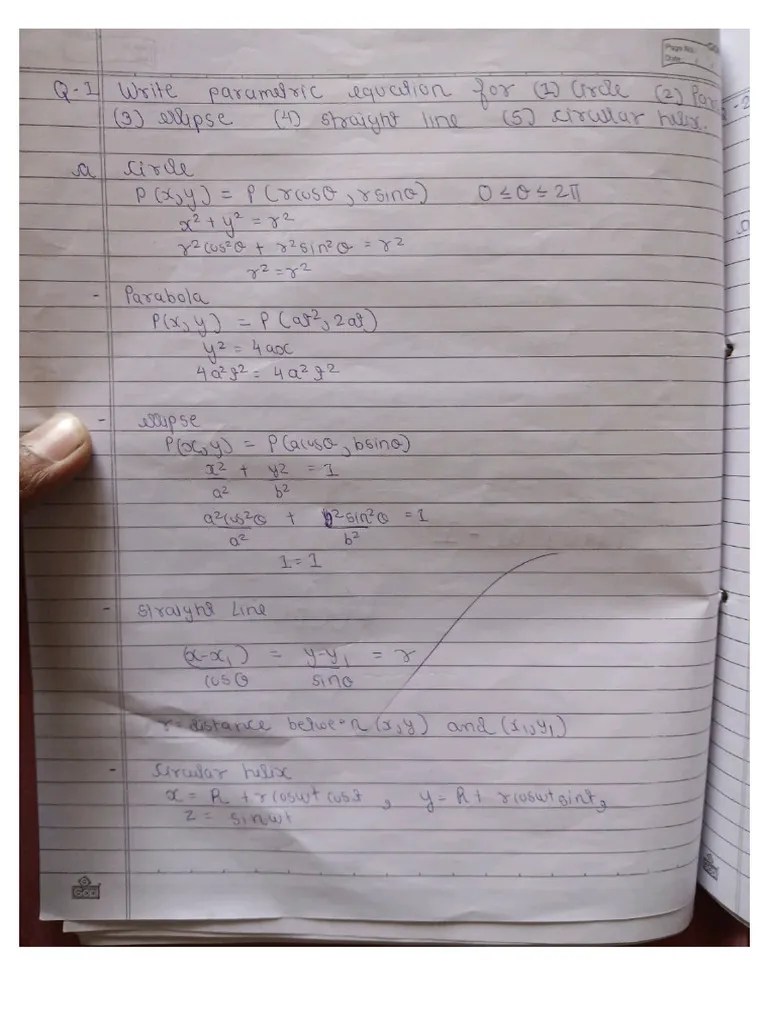 Page No.
Date:
Q-1 Write parametric equation for (1) Circle (2) Par
(3) ellipse (4) straight line (5) circular helix.
a circle
P(x,y) = P(rcosθ, rsinθ) 0 ≤ θ ≤ 2π
x² + y² = r²
r²cos²θ + r²sin²θ = r²
r² = r²
- Parabola
P(x, y) = P(at², 2at)
y² = 4ax
4a²t² = 4a²t²
- ellipse
P(x,y) = P(acosθ, bsinθ)
x²/a² + y²/b² = 1
a²cos²θ/a² + b²sin²θ/b² = 1
1 = 1
- straight Line
(x-x₁)/cosθ = y-y₁/sinθ = r
r = distance between (x,y) and (x₁,y₁)
- circular helix
x = R + rcoswt cost, y = R + rcoswt sint,
z = sinwt